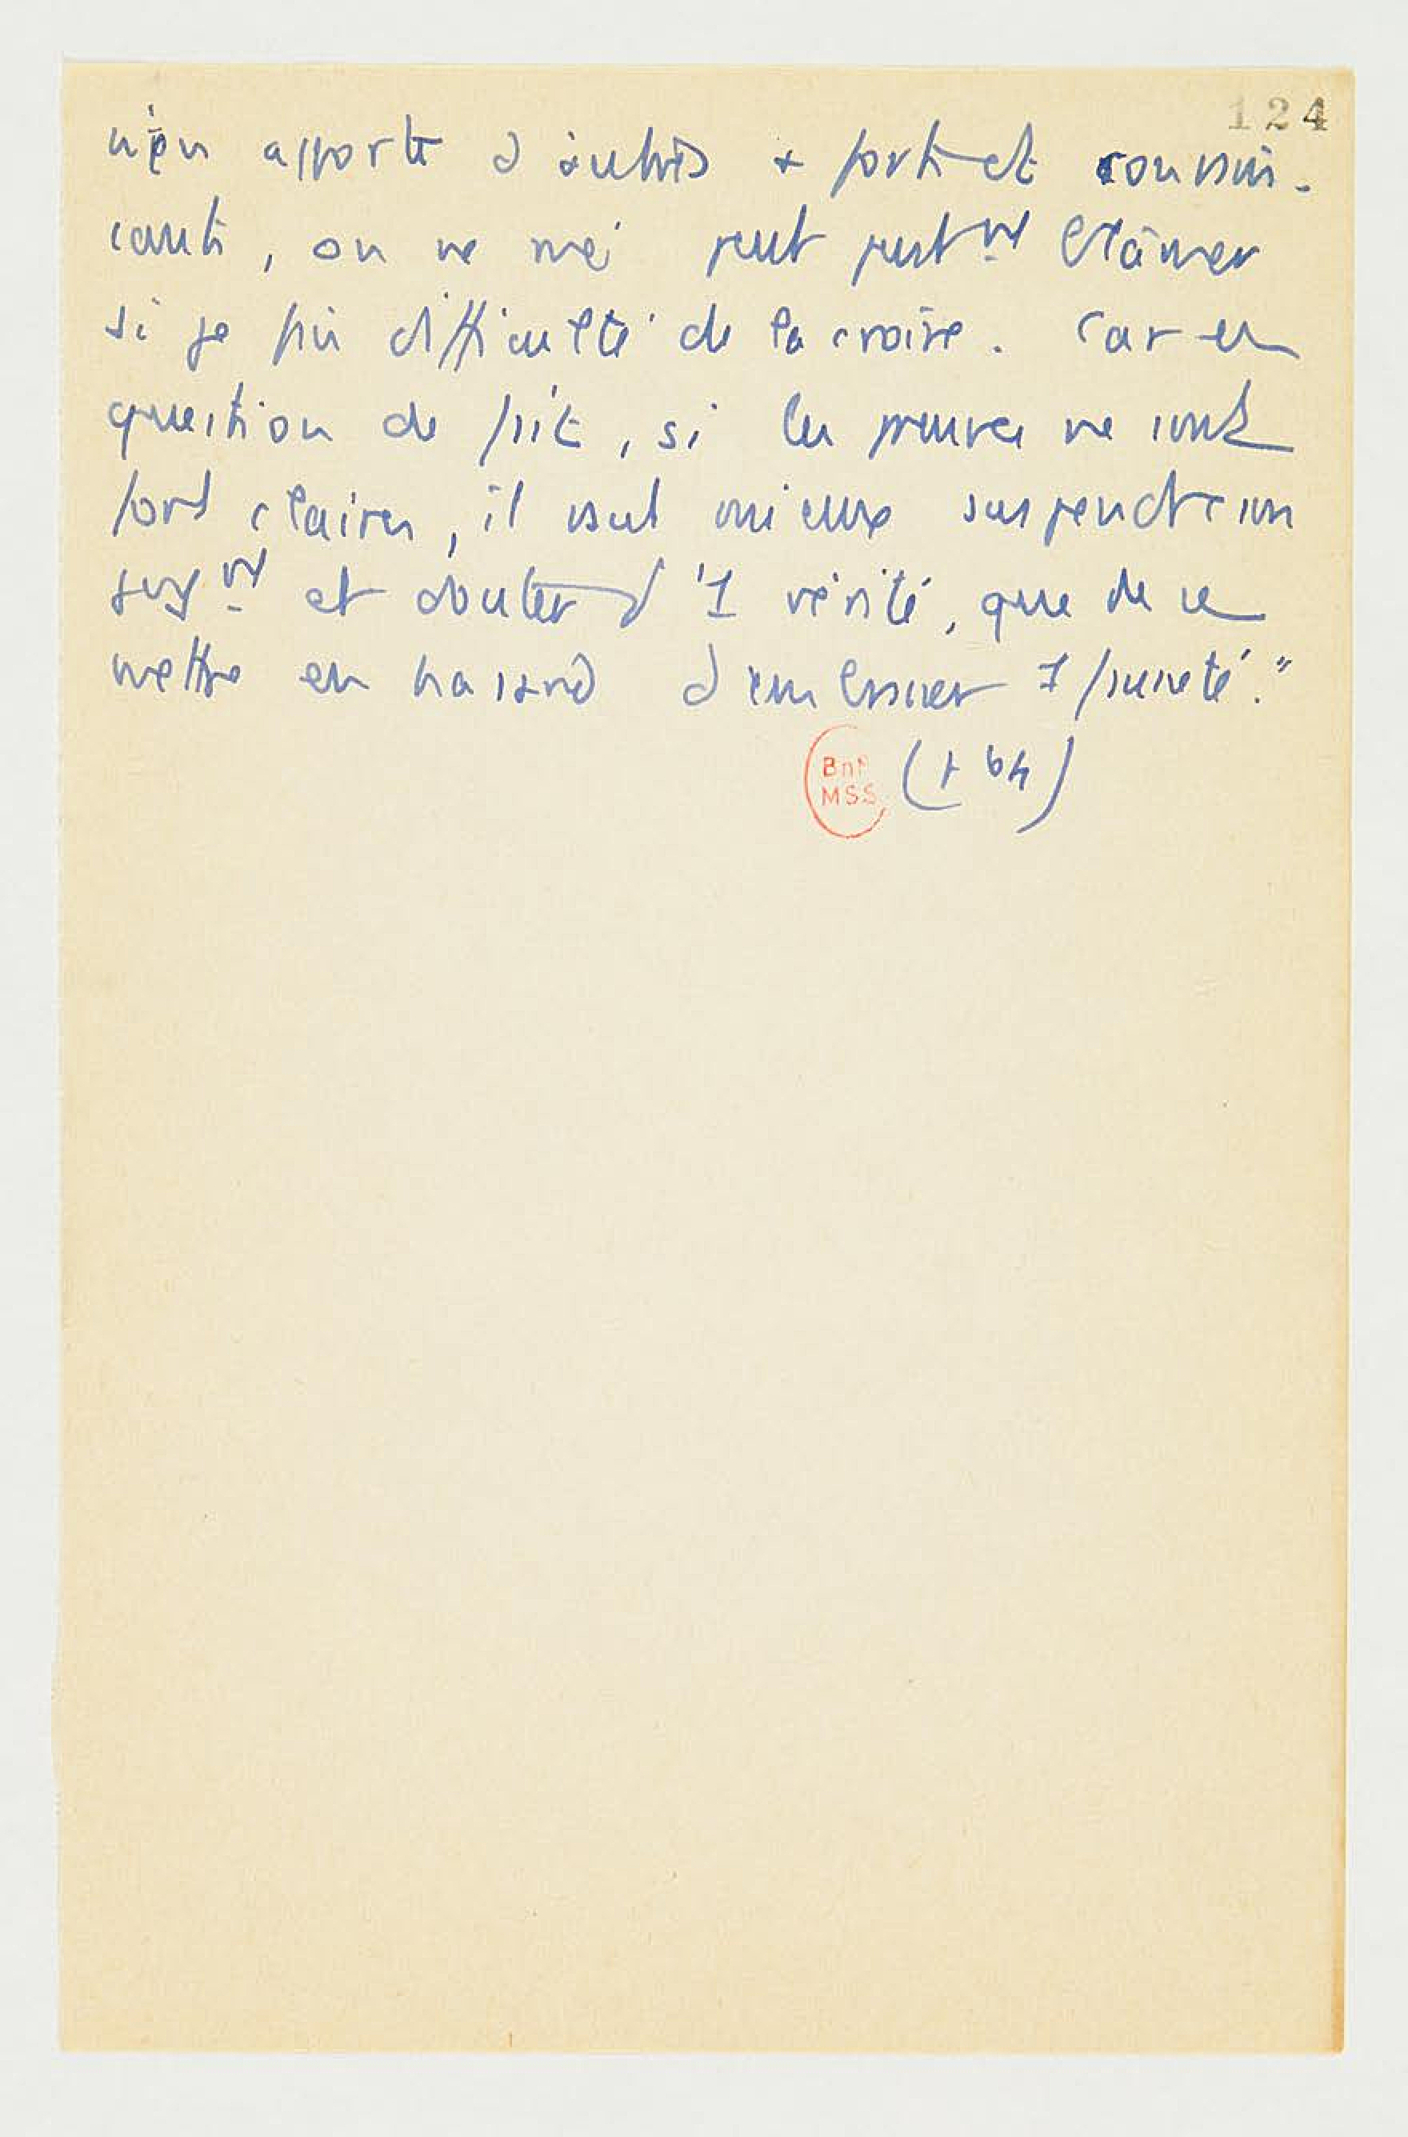 124
n'en apporte d'autres + fortes et convain-
cantes, on ne me peut justmt blâmer
si je fais difficulté de la croire. Car en
question de fait, si les preuves ne sont
fort claires, il vaut mieux suspendre son
jugmt et douter d'1 vérité, que de se
mettre en hasard d'embrasser 1 fausseté."
BnF
MSS